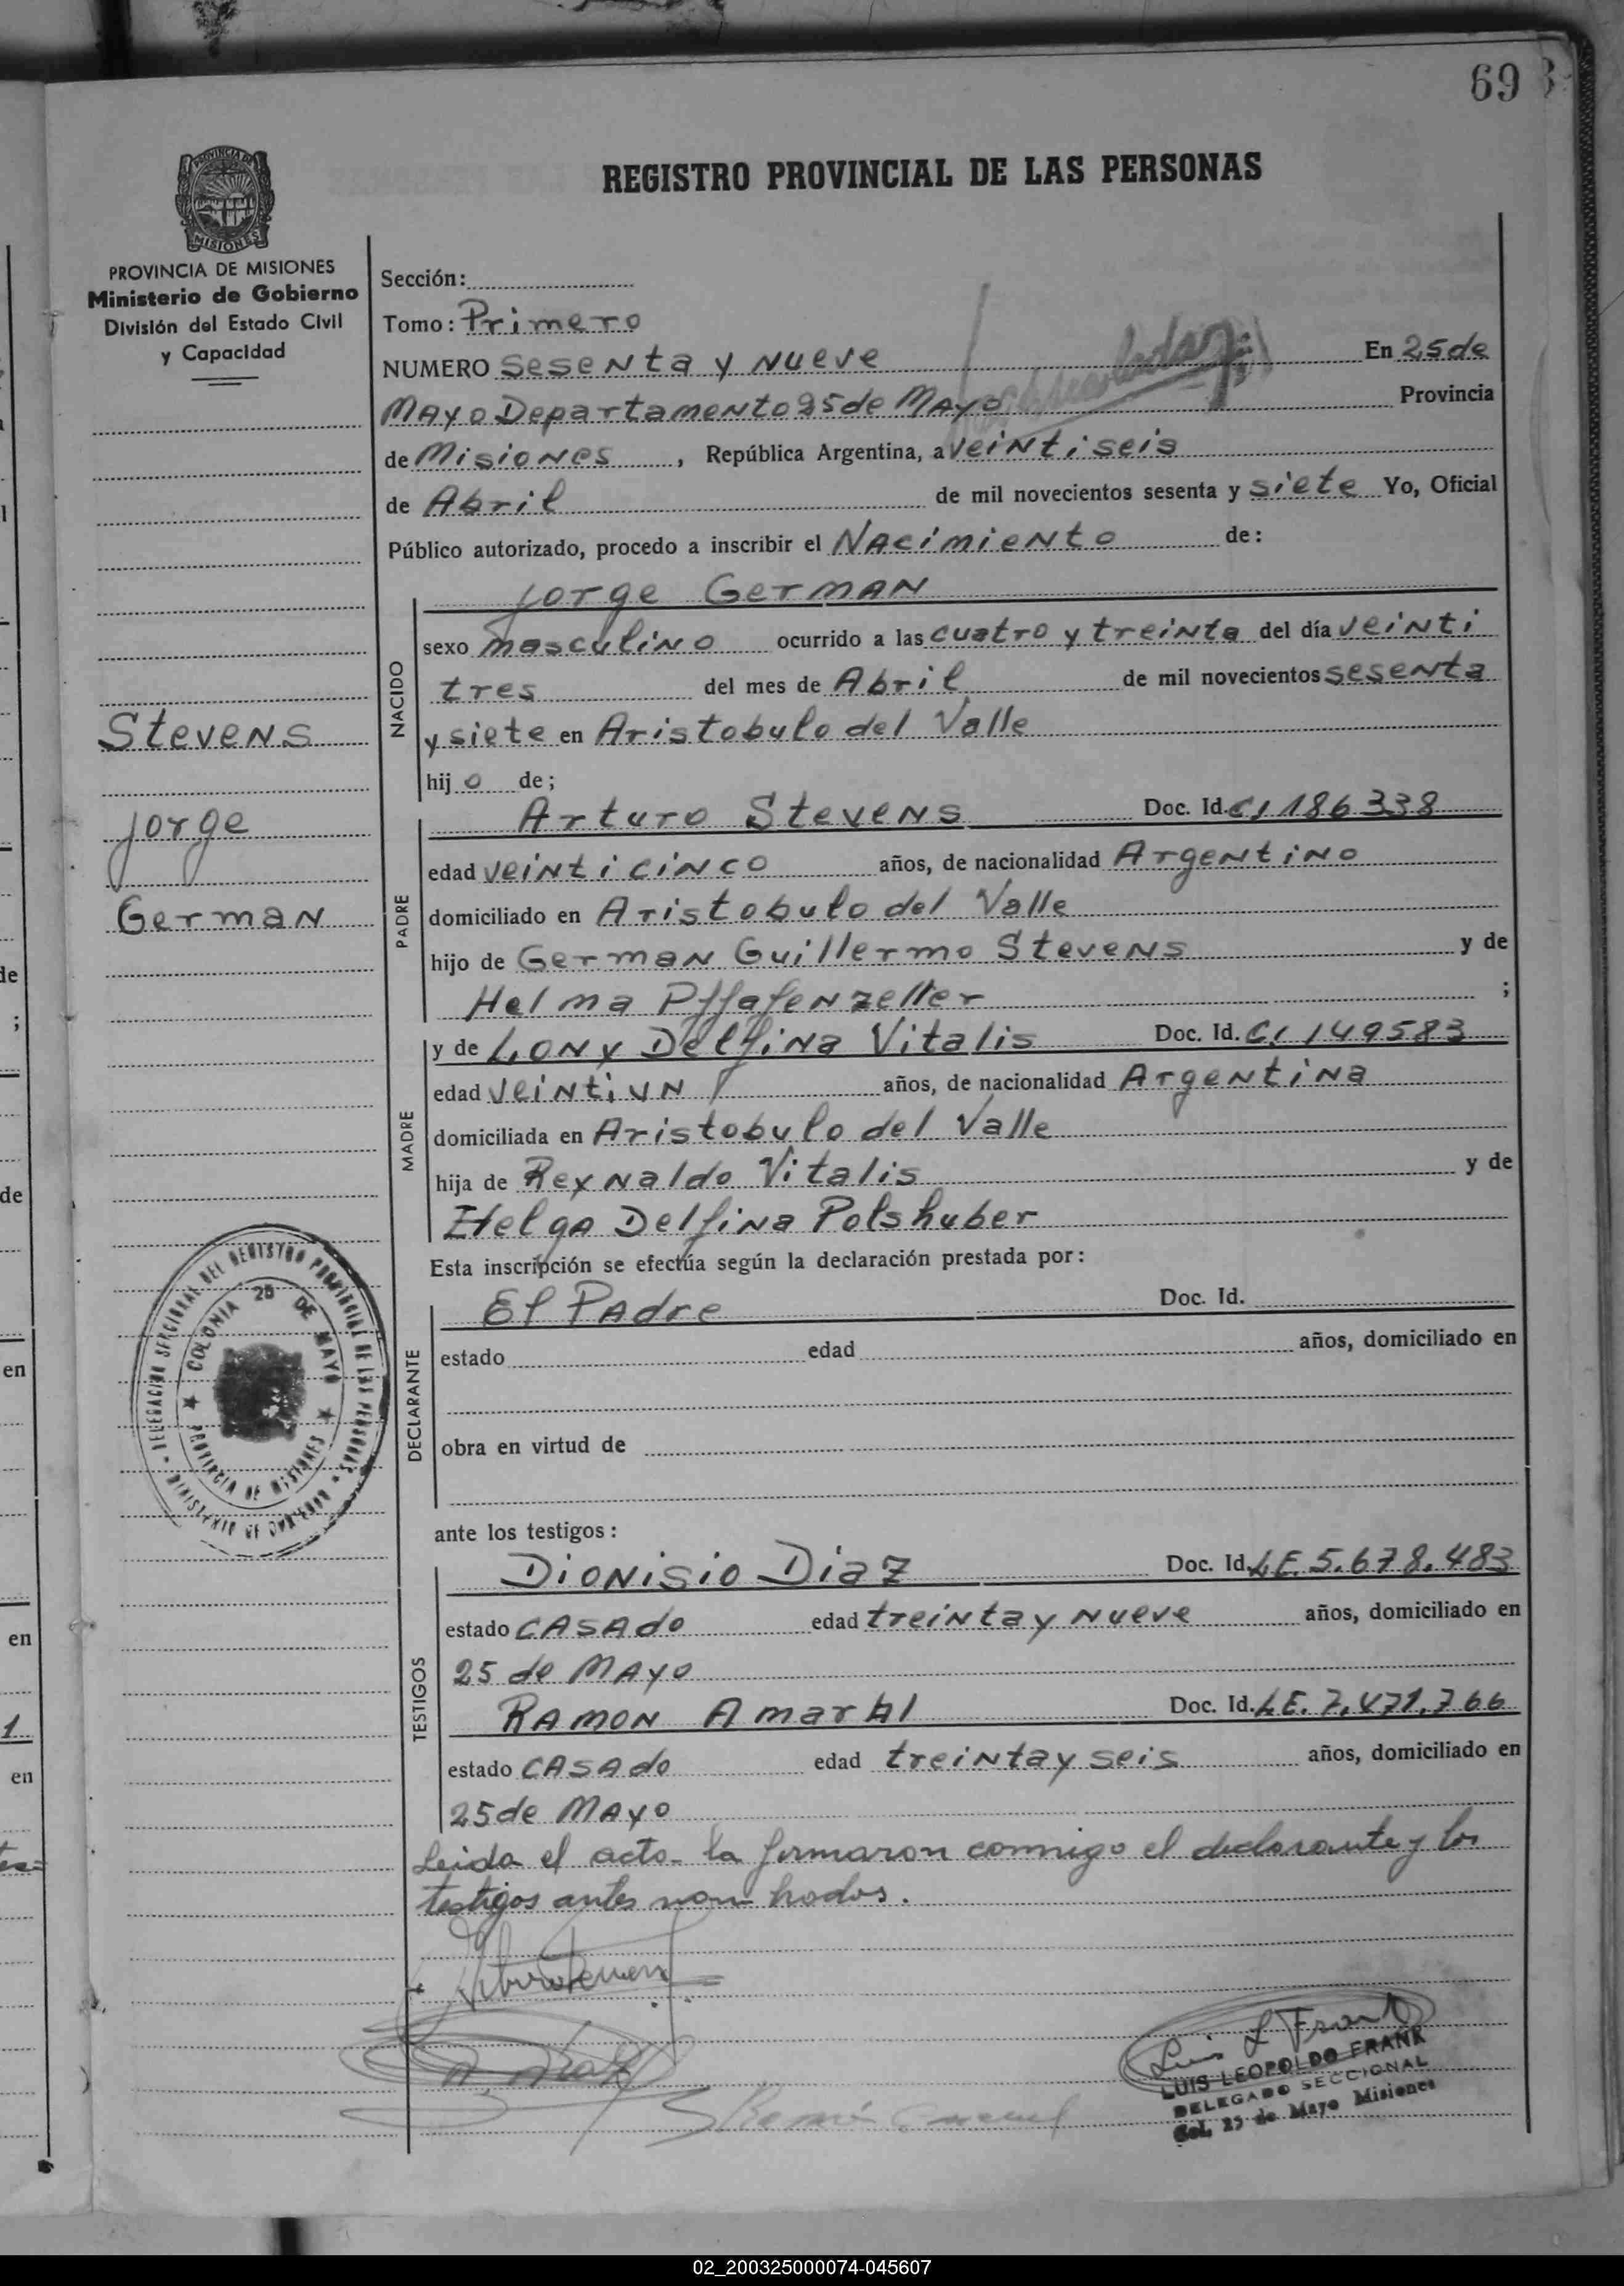 69
REGISTRO PROVINCIAL DE LAS PERSONAS
PROVINCIA DE
MISIONES
PROVINCIA DE MISIONES
Ministerio de Gobierno
División del Estado Civil
y Capacidad
Stevens
Jorge
German
Sección:
Tomo: Primero
NUMERO sesenta y nueve En 25 de
Mayo Departamento 25 de Mayo Provincia
de Misiones, República Argentina, a veintiseis
de Abril de mil novecientos sesenta y siete Yo, Oficial
Público autorizado, procedo a inscribir el Nacimiento de:
Jorge German
NACIDO
sexo masculino ocurrido a las cuatro y treinta del día veinti
tres del mes de Abril de mil novecientos sesenta
y siete en Aristobulo del Valle
hijo de;
PADRE
Arturo Stevens Doc. Id. C, 186338
edad veinticinco años, de nacionalidad Argentino
domiciliado en Aristobulo del Valle
hijo de German Guillermo Stevens y de
Helma Pffafenzeller ;
MADRE
y de Lony Delfina Vitalis Doc. Id. C, 149583
edad veintiun años, de nacionalidad Argentina
domiciliada en Aristobulo del Valle
hija de Reynaldo Vitalis y de
Helga Delfina Polshuber
Esta inscripción se efectúa según la declaración prestada por:
DECLARANTE
El Padre Doc. Id.
estado edad años, domiciliado en
obra en virtud de
ante los testigos:
TESTIGOS
Dionisio Diaz Doc. Id. LE. 5.678.483
estado casado edad treinta y nueve años, domiciliado en
25 de Mayo
Ramon Amaral Doc. Id. LE. 7.471.766
estado casado edad treinta y seis años, domiciliado en
25 de Mayo
Leida el acta la firmaron conmigo el declarante y los
testigos antes nombrados.
DELEGACION SECCIONAL DEL REGISTRO PROVINCIAL DE LAS PERSONAS
MINISTERIO DE GOBIERNO
COLONIA 25 DE MAYO
PROVINCIA DE MISIONES
Luis L Frank
LUIS LEOPOLDO FRANK
DELEGADO SECCIONAL
Col. 25 de Mayo Misiones
02_200325000074-045607